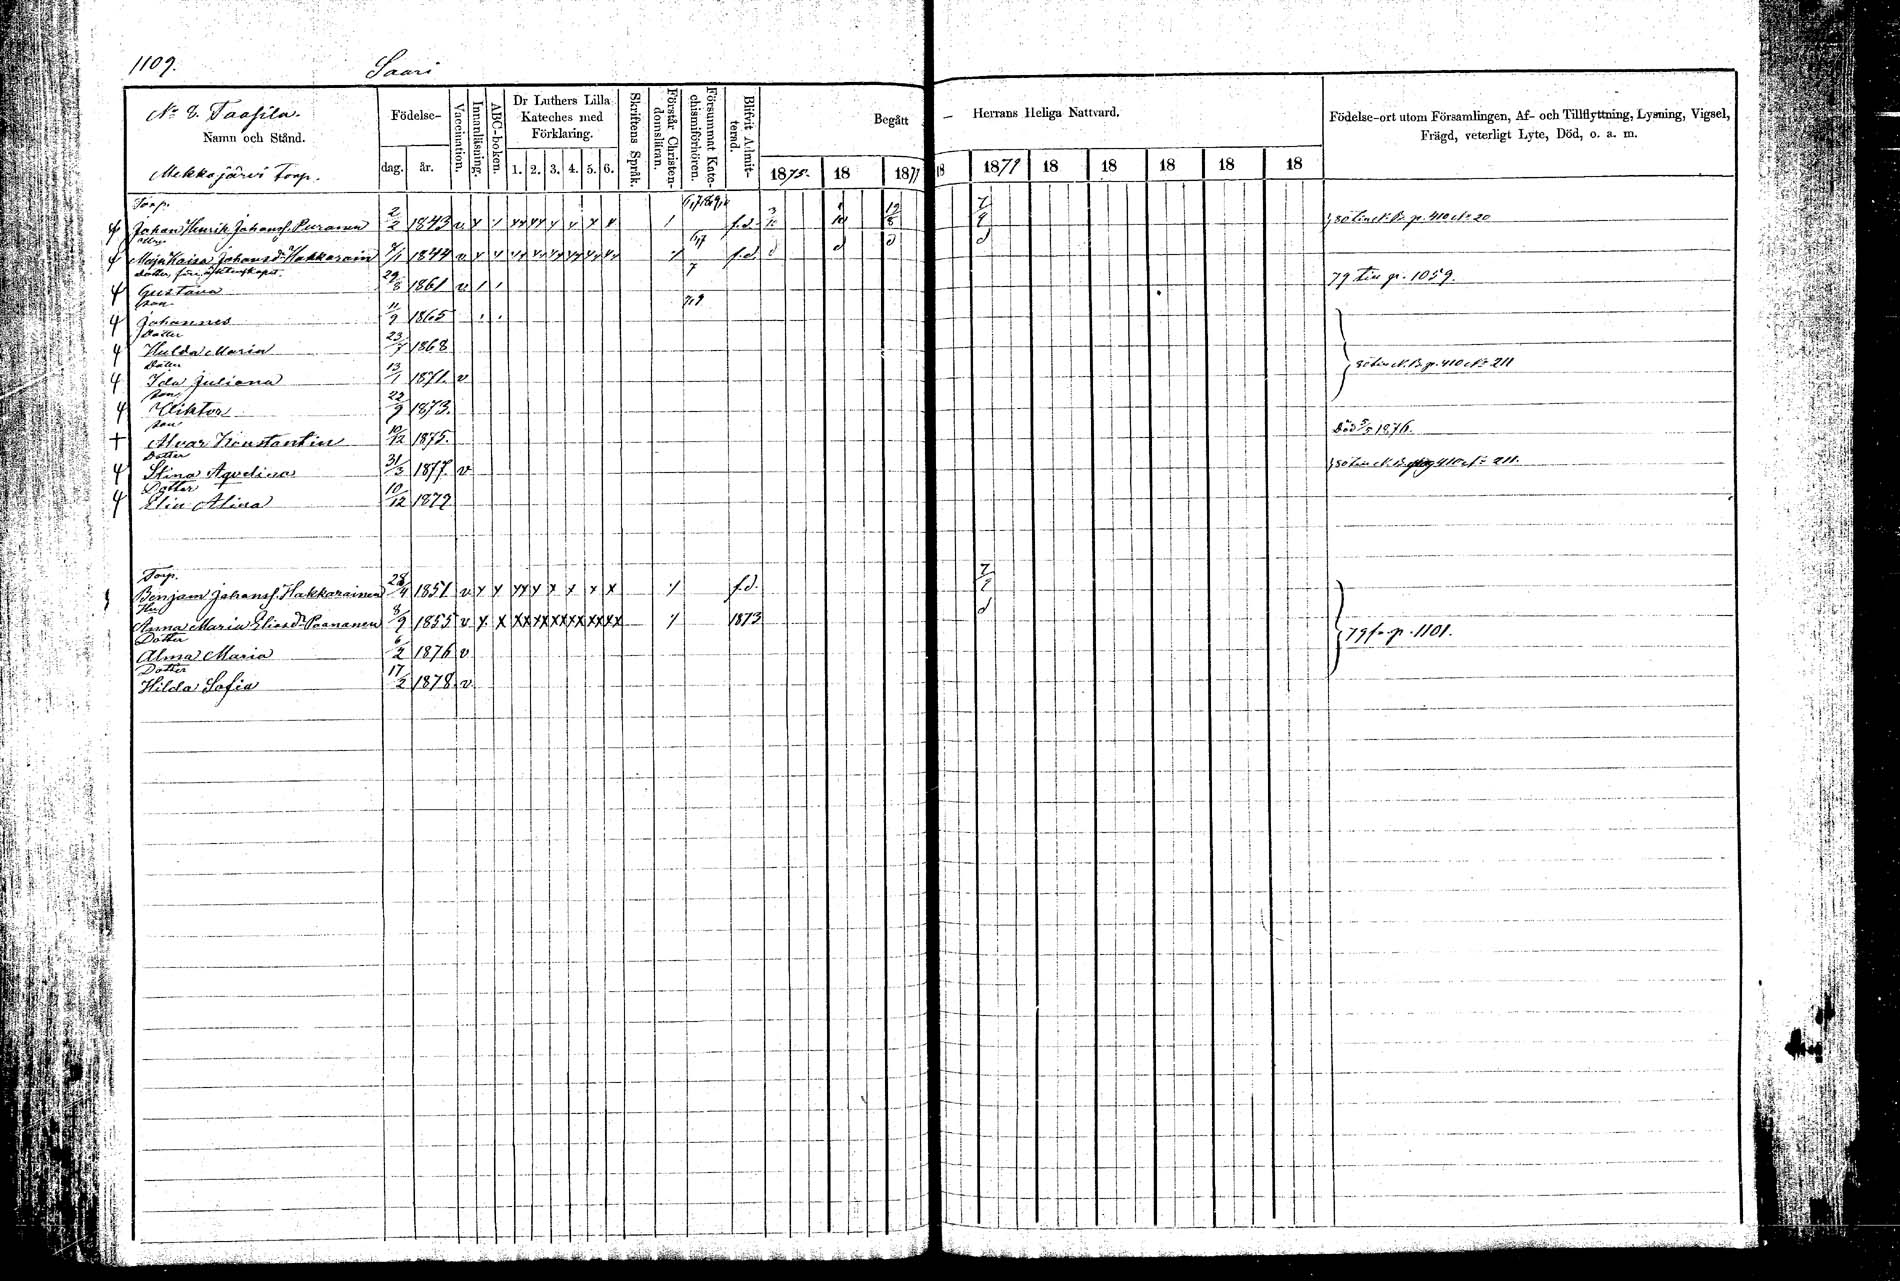 1109.
Saari
No 8. Taasila.
Namn och Stånd.
Mekkojärvi Torp.
Födelse-
dag. år.
Vaccination.
Innanläsning.
ABC-boken.
Dr Luthers Lilla
Kateches med
Förklaring.
1. 2. 3. 4. 5. 6.
Skriftens Språk.
Förstår Christen-
domsläran.
Försummat Kate-
chismiförhören.
Blifvit Admit-
terad.
Begått — Herrans Heliga Nattvard.
1875. 18 1877 18 1879 18 18 18 18 18
Födelse-ort utom Församlingen, Af- och Tillflyttning, Lysning, Vigsel,
Frägd, veterligt Lyte, Död, o. a. m.
Torp.
Johan Henrik Johanss. Puranen 2/2 1843 v f.d.
Maja Kaisa Johansdr Hakkarain 1844 v f.d. d d d d
Dotter, före äktenskapet.
Gustava 29/8 1861 v 7 79 tin p. 1059.
Son
Johannes 11/9 1865 7,9
Dotter
Hulda Maria 1868
Dotter
Ida Juliana 13/1 1871. v p. 410 No 211
Son
Viktor 22/9 1873.
Son
Alvar Konstantin 10/12 1875. Död 1876.
Dotter
Stina Aqvelina 31/3 1877. v 410 No 211.
Dotter
Elin Alina 10/12 1879
Torp.
Benjam Johanss. Hakkarainen 28/4 1851 v f.d. 7/9
Hu
Anna Maria Eliasdr Paananen 8/9 1855 v 1873 d
79 fr. p. 1101.
Dotter
Alma Maria 6/2 1876 v
Dotter
Hilda Sofia 17/2 1878. v